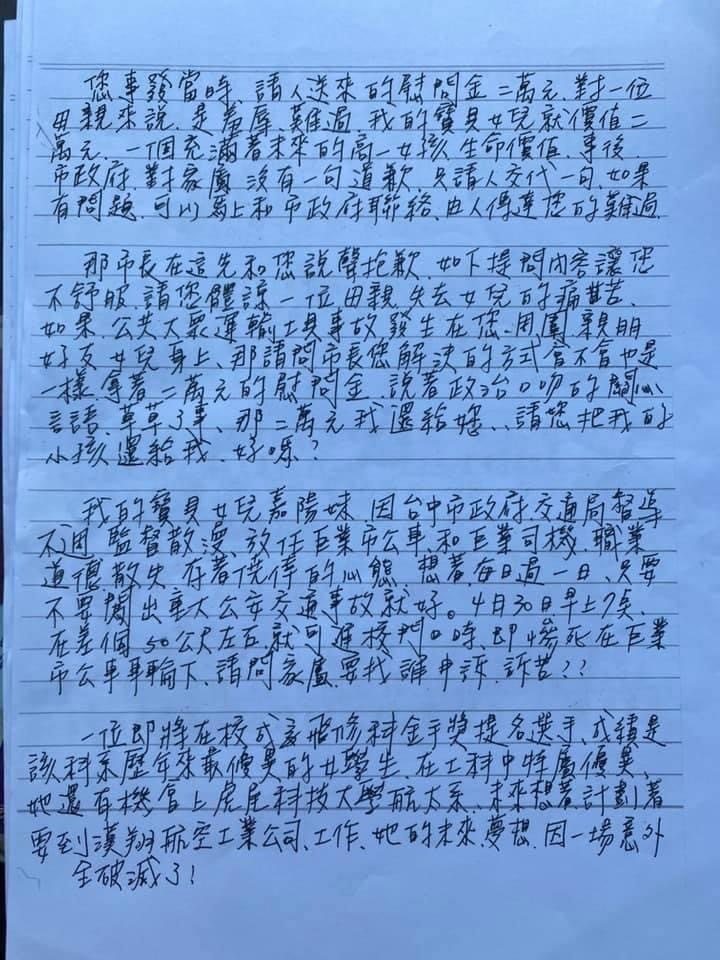 您事發當時、請人送來的慰問金二萬元、對一位
母親來說、是羞辱、難過、我的寶貝女兒就價值二
萬元、一個充滿著未來的高一女孩生命價值、事後
市政府對家屬沒有一句道歉、只請人交代一句、如果
有問題、可以馬上和市政府聯絡、由人傳達您的難過、
那市長在這先和您說聲抱歉、如下提問內容讓您
不舒服、請您體諒一位母親失去女兒的痛苦、
如果、公共大眾運輸工具事故發生在您、周圍親朋
好友女兒身上、那請問市長您解決的方式會不會也是
一樣、拿著二萬元的慰問金、說著政治口吻的關心
言語、草草了事、那二萬元我還給妳您、、請您把我的
小孩還給我、好嗎？
我的寶貝女兒嘉陽妹、因台中市政府交通局督導
不週、監督散漫、放任巨業市公車、和巨業司機、職業
道德散失、存著僥倖的心態、想著、每日過一日、只要
不要闖出重大公安交通事故就好。4月30日早上7點、
在差個50公尺左右、就可進校門口時、即慘死在巨業
市公車車輪下、請問家屬、要找誰申訴、訴苦？？
一位即將在校成為飛修科金手獎提名選手、成績是
該科系歷年來最優異的女學生、在工科中特屬優異、
她還有機會上虎尾科技大學航太系、未來想著計劃著
要到漢翔航空工業公司、工作、她的未來、夢想、因一場意外
全破滅了！